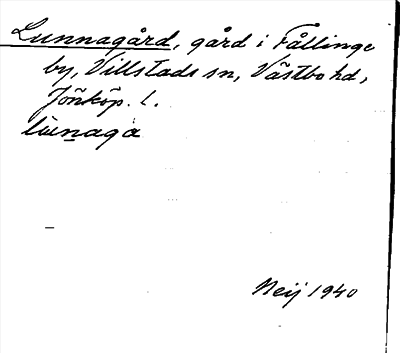 Lunnagård, gård i Fållinge
by, Villstads sn, Västbo hd,
Jönköp. l.
lunaga
Neij 1940